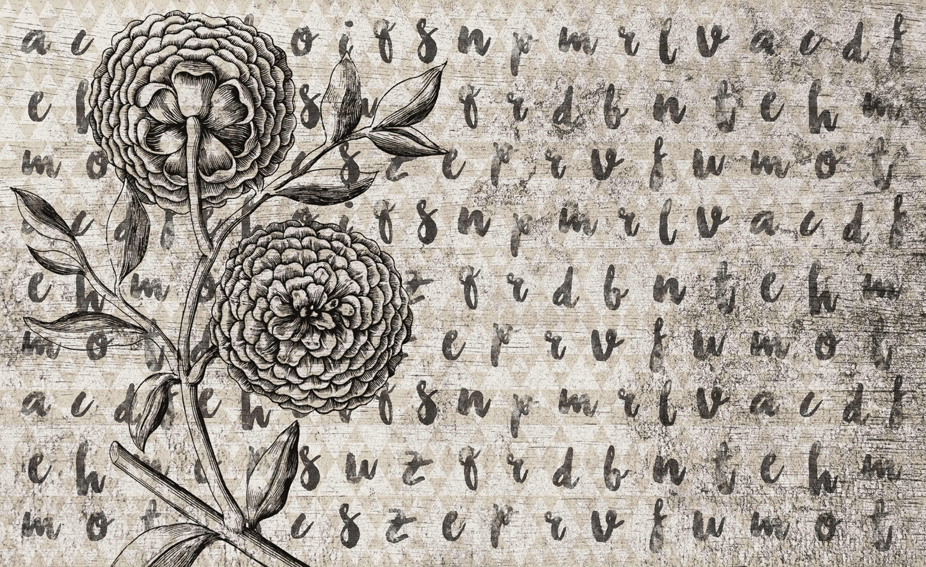 a c o i f s n p m r l v a c d f
e h s u f r d b n t e h m
m o c s z e p r v f u m o t
c d f o i f s n p m r l v a c d f
e h m o z f r d b n t e h m
m o t e p r v f u m o t
a c d f e h i f s n p m r l v a c d f
e h m s u z f r d b n t e h m
m o t c s z e p r v f u m o t